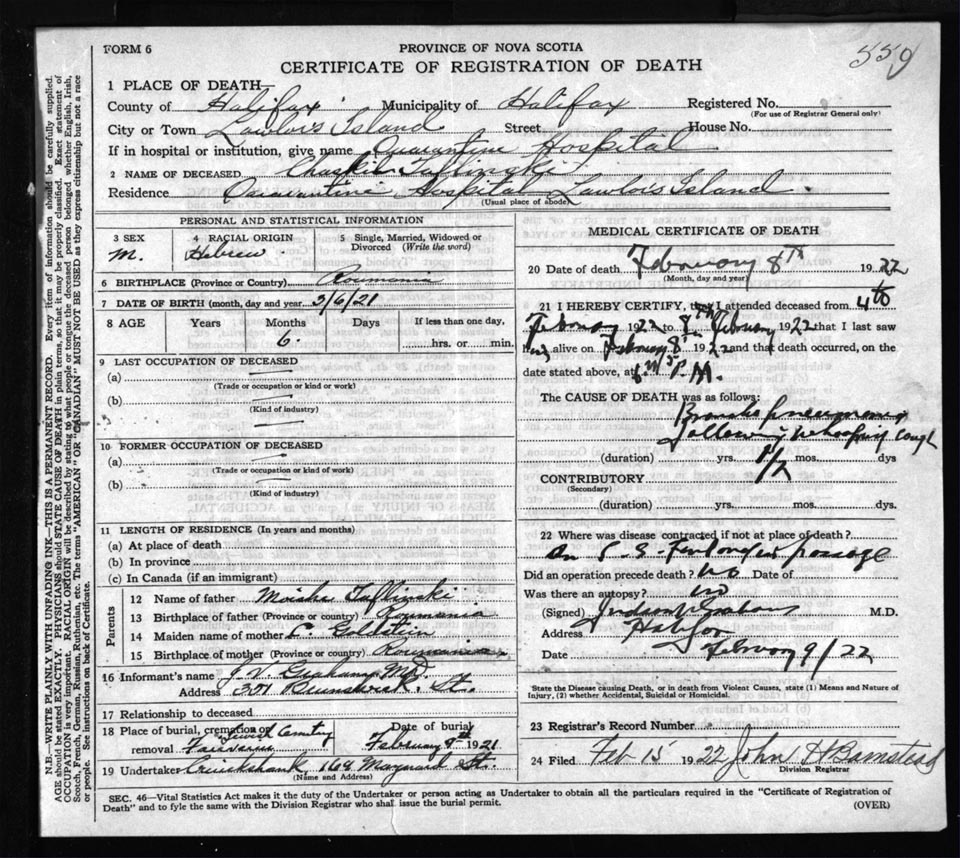 FORM 6
PROVINCE OF NOVA SCOTIA
559
CERTIFICATE OF REGISTRATION OF DEATH
1 PLACE OF DEATH
County of Halifax Municipality of Halifax Registered No.
(For use of Registrar General only)
City or Town Lawlois Island Street House No.
If in hospital or institution, give name Quarantine Hospital
2 NAME OF DECEASED
Residence Quarantine Hospital Lawlois Island.
(Usual place of abode)
PERSONAL AND STATISTICAL INFORMATION
3 SEX
M.
4 RACIAL ORIGIN
Hebrew
5 Single, Married, Widowed or Divorced (Write the word)
6 BIRTHPLACE (Province or Country) Roumania
7 DATE OF BIRTH (month, day and year) 3/6/21
8 AGE Years Months Days If less than one day,
6 hrs. or min.
9 LAST OCCUPATION OF DECEASED
(a)
(Trade or occupation or kind or work)
(b)
(Kind of industry)
10 FORMER OCCUPATION OF DECEASED
(a)
(Trade or occupation or kind of work)
(b)
(Kind of industry)
11 LENGTH OF RESIDENCE (In years and months)
(a) At place of death
(b) In province
(c) In Canada (if an immigrant)
Parents
12 Name of father Moishe Tuflinski
13 Birthplace of father (Province or country) Roumania
14 Maiden name of mother C. Goldstein
15 Birthplace of mother (Province or Country) Roumania
16 Informant's name J. V. Graham M.D.
Address 301 Brunswick St.
17 Relationship to deceased
18 Place of burial, cremation or removal Jewish Cemetery Fairview
Date of burial February 8th 1921
19 Undertaker Cruickshank 169 Maynard St.
(Name and Address)
MEDICAL CERTIFICATE OF DEATH
20 Date of death February 8th 1922
(Month, day and year)
21 I HEREBY CERTIFY, that I attended deceased from 4th
February 1922 to 8th February 1922 that I last saw
him alive on February 8th 1922 and that death occurred, on the
date stated above, at P.M.
The CAUSE OF DEATH was as follows:
Broncho pneumonia
following whooping cough
(duration) yrs. 1/2 mos. dys
CONTRIBUTORY
(Secondary)
(duration) yrs. mos. dys.
22 Where was disease contracted if not at place of death?
On S.S. passage
Did an operation precede death? no Date of
Was there an autopsy? no
(Signed) M.D.
Address Halifax
Date February 9/22
State the Disease causing Death, or in death from Violent Causes, state (1) Means and Nature of
Injury, (2) whether Accidental, Suicidal or Homicidal.
23 Registrar's Record Number
24 Filed Feb 15 1922 John H Barnstead
Division Registrar
SEC. 46—Vital Statistics Act makes it the duty of the Undertaker or person acting as Undertaker to obtain all the particulars required in the "Certificate of Registration of
Death" and to fyle the same with the Division Registrar who shall issue the burial permit. (OVER)
N.B.—WRITE PLAINLY WITH UNFADING INK—THIS IS A PERMANENT RECORD. Every item of information should be carefully supplied.
AGE should be stated EXACTLY. PHYSICIANS should STATE CAUSE OF DEATH in plain terms, so that it may be properly classified. Exact statement of
OCCUPATION is very important. RACIAL ORIGIN will be described by stating to what people or tongue the deceased person belonged, whether English, Irish,
Scotch, French, German, Russian, Ruthenian, etc. The terms "AMERICAN" OR "CANADIAN" MUST NOT BE USED as they express citizenship but not a race
or people. See instructions on back of Certificate.